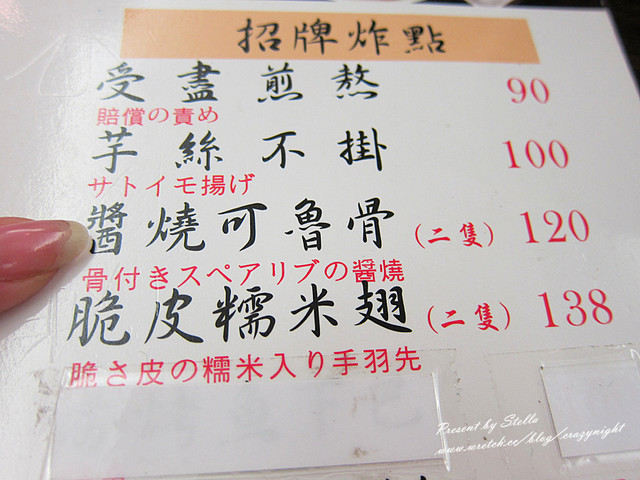 招牌炸點
受盡煎熬 90
賠償の責め
芋絲不掛 100
サトイモ揚げ
醬燒可魯骨(二隻) 120
骨付きスペアリブの醤燒
脆皮糯米翅(二隻) 138
脆さ皮の糯米入り手羽先
Present by Stella
www.wretch.cc/blog/crazynight